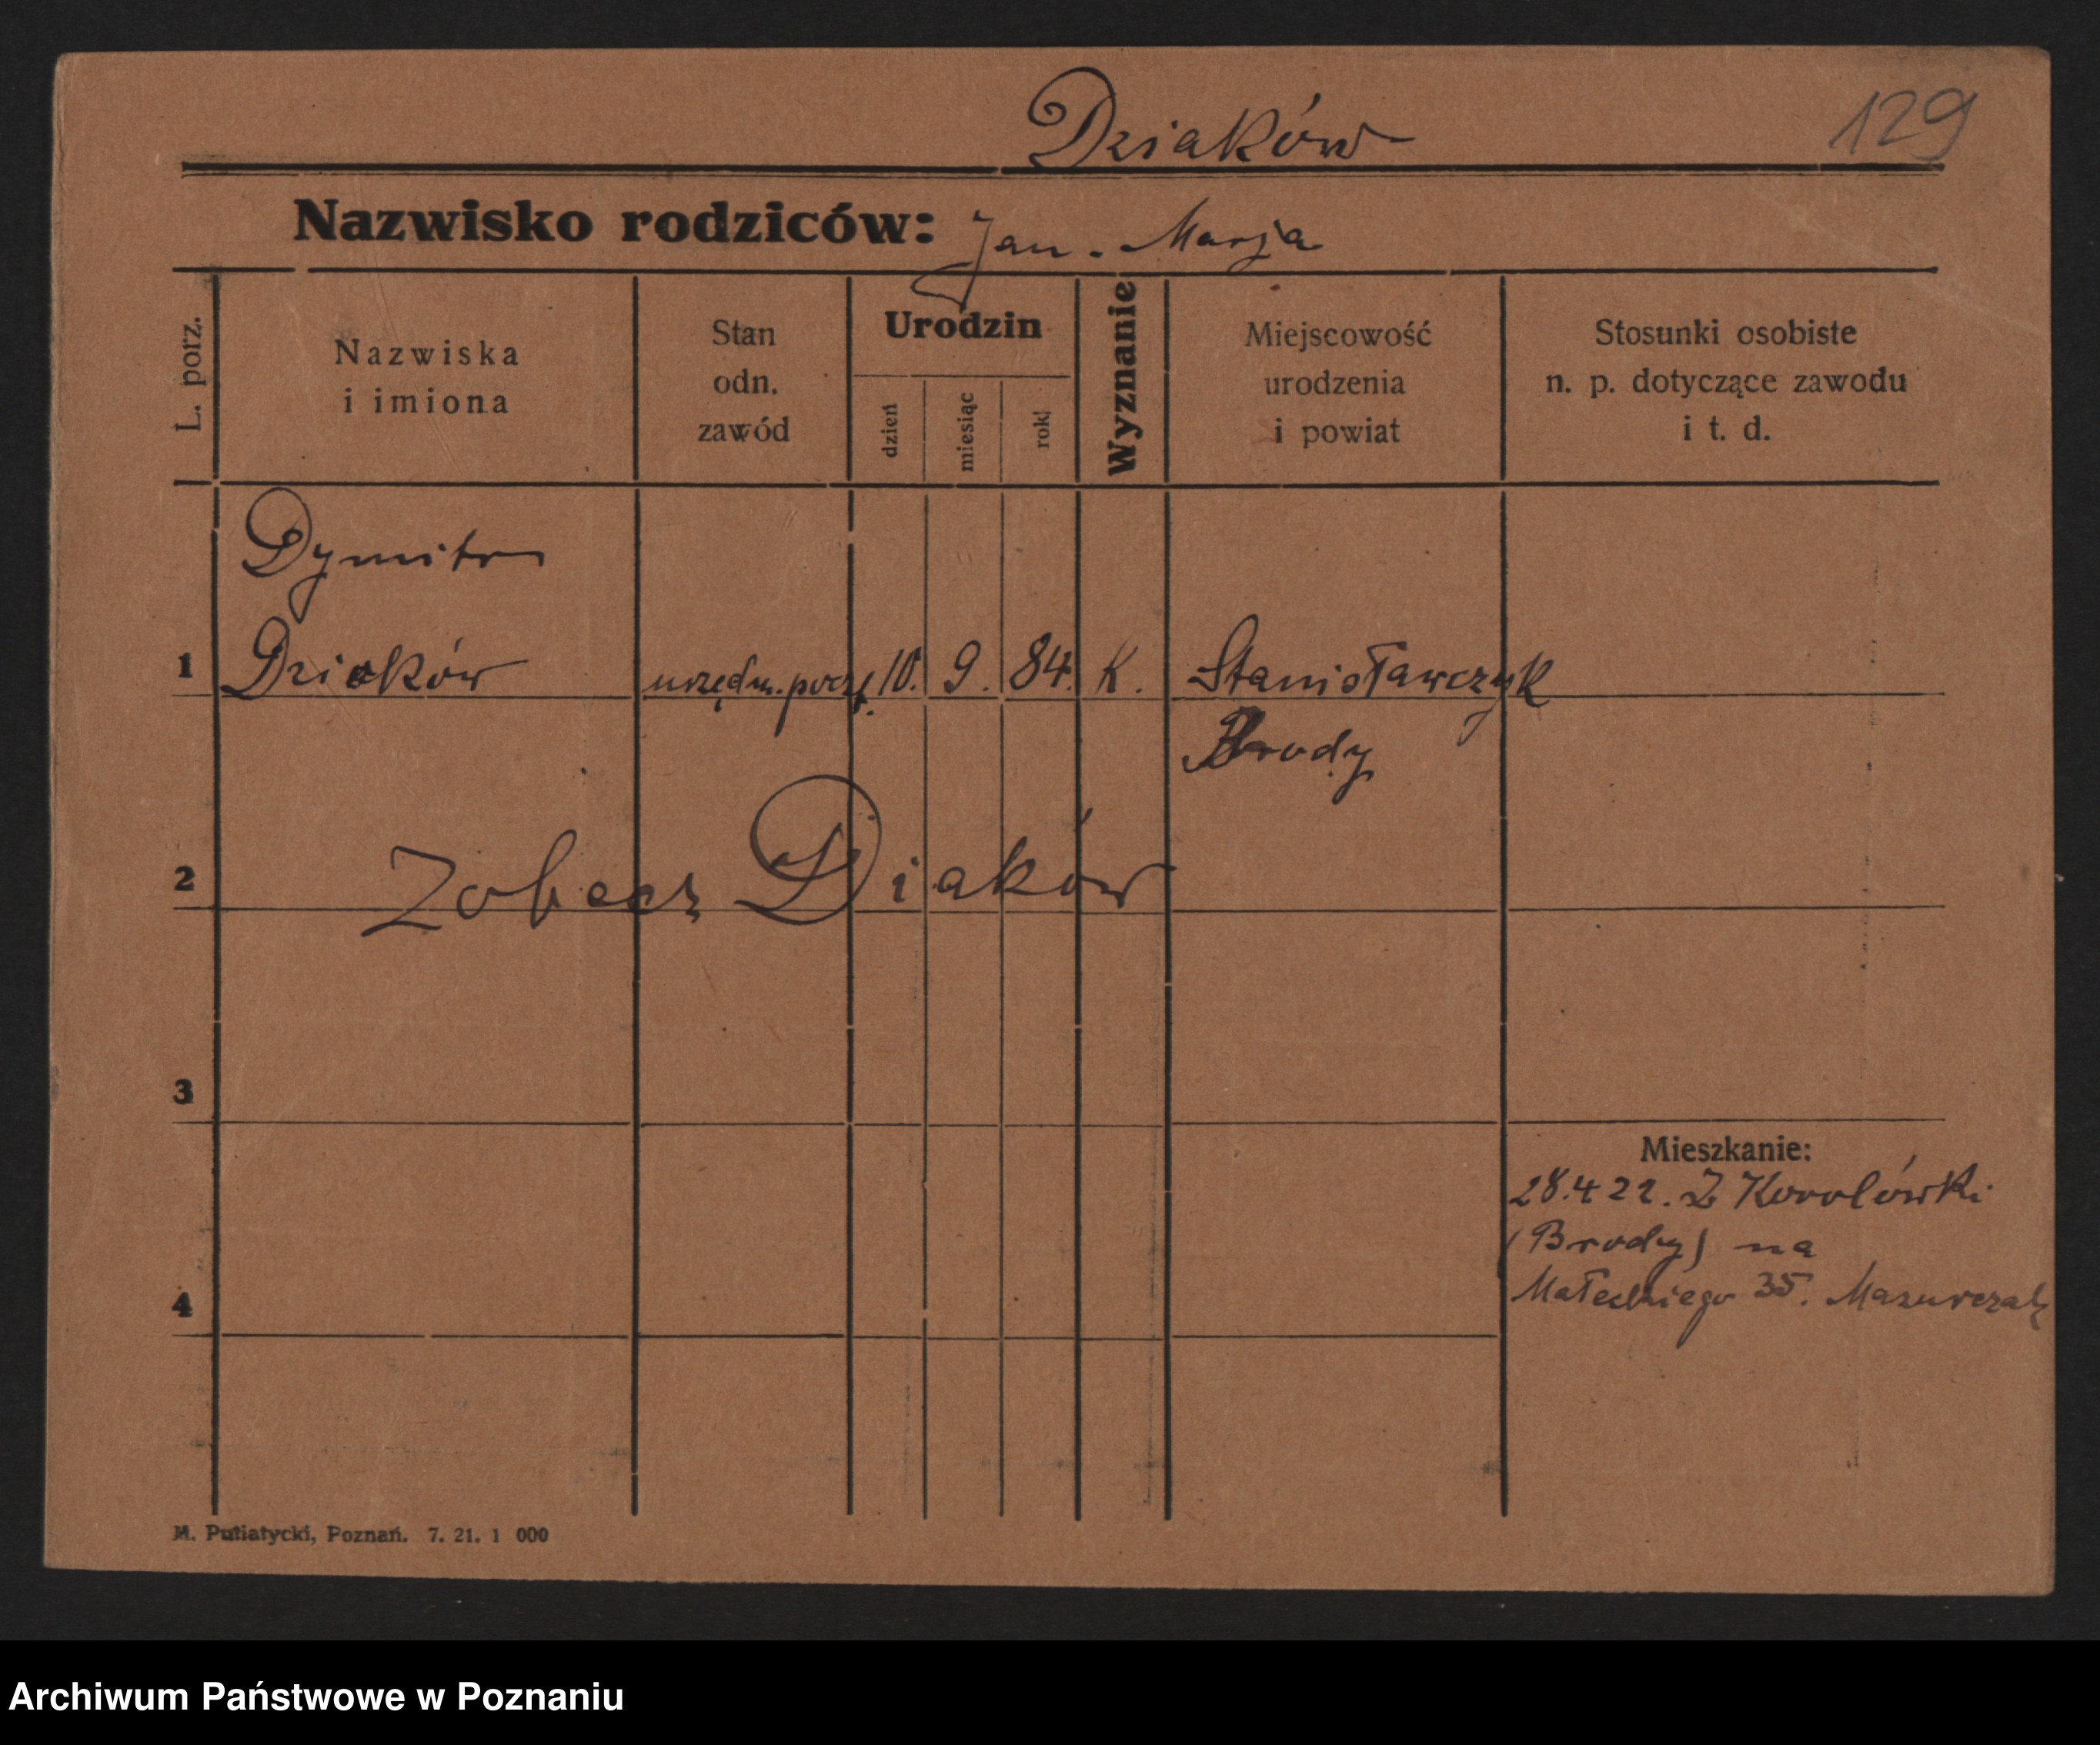 Dziaków
129
Nazwisko rodziców: Jan. Marja
L. porz.
Nazwiska
i imiona
Stan
odn.
zawód
Urodzin
dzień
miesiąc
rok
Wyznanie
Miejscowość
urodzenia
i powiat
Stosunki osobiste
n. p. dotyczące zawodu
i t. d.
Dymitr
1 Dziaków urzędn. poczt. 10. 9. 84. K. Stanisławczyk
Brody
2 Zobacz Diaków
3
Mieszkanie:
28.4 22. Z Korolówki
(Brody) na
4 Małeckiego 35. Mazurczak
M. Putiatycki, Poznań. 7. 21. 1 000
Archiwum Państwowe w Poznaniu